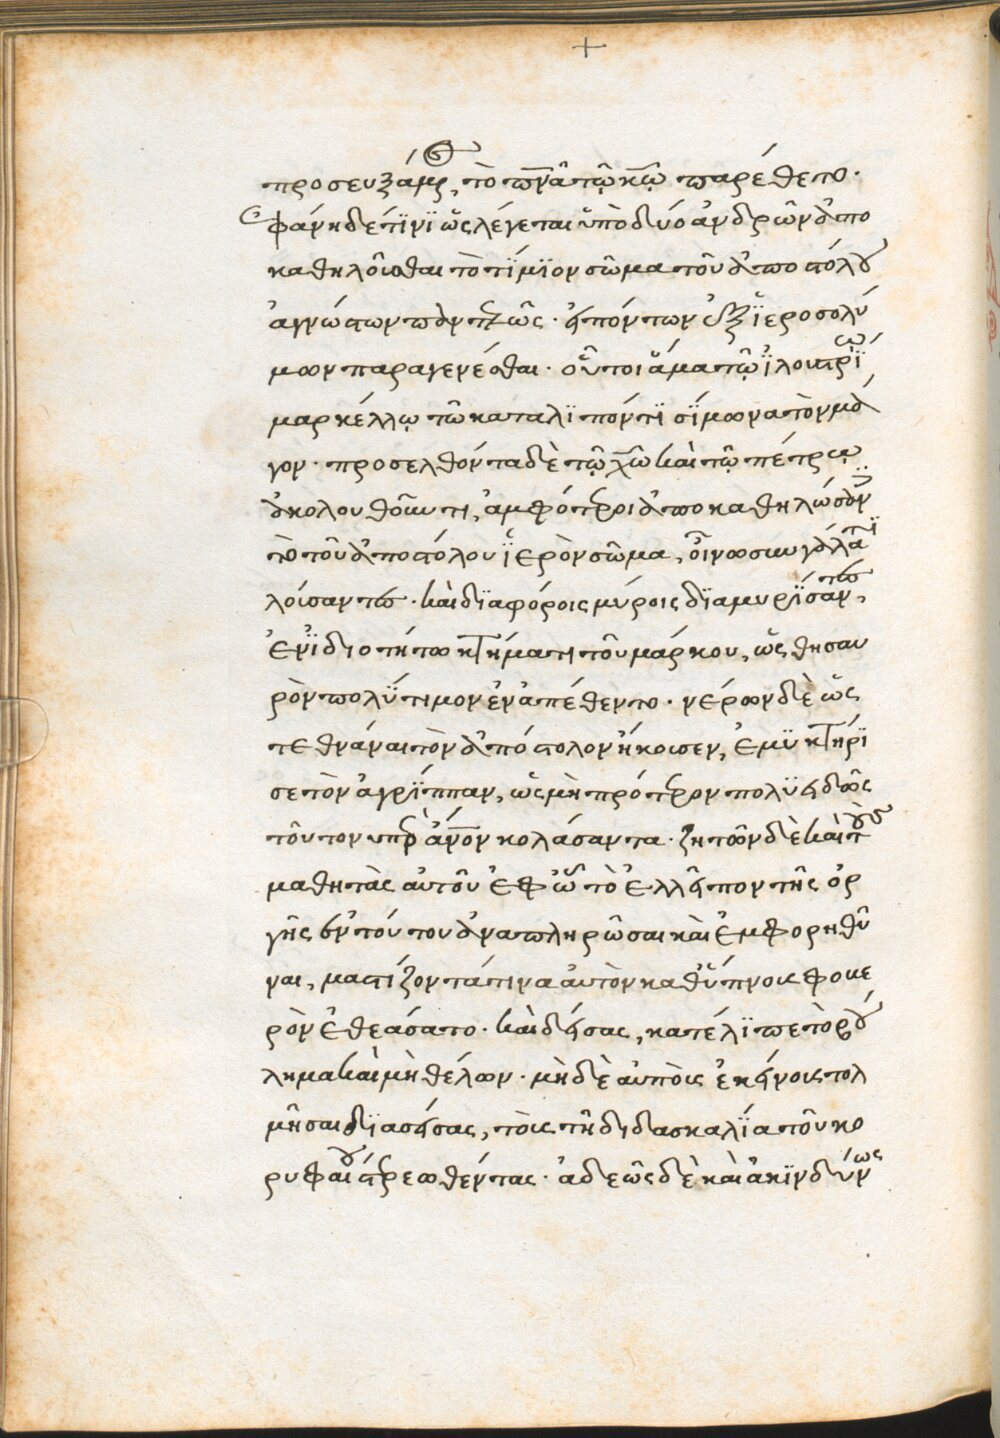 +
προσευξάμενος, τὸ πν̅α τῷ κ̅ῳ παρέθετο.
φάνηδέτϊνϊ ὡς λέγεται ὑπὸ δύο ἀνδρῶν ἀπο
καθηλῶσθαι τὸ τίμϊον σῶμα τοῦ ἀποστόλου
ἀγνώστων παντελῶς. εἰπόντων ἐξ ϊεροσολύ
μων παραγενέσθαι. οὗτοι ἅμα τῷ ϊλουστρίῳ
μαρκέλλῳ τῷ καταλϊπόντϊ σϊμωνα τὸν μά
γον. προσελθόντα δὲ τῷ χ̅ῶ καὶ τῷ πέτρῳ
ἀκολουθοῦντι, ἀμφότεροι ἀποκαθηλώσαν
τὸ τοῦ ἀποστόλου ϊερὸν σῶμα, οἴνωσιν γάλατϊ
λούσαντες. καὶ δϊαφόροις μύροις δϊαμυρΐσαντες,
ἐνϊδιοτήτω κτήματι τοῦ μάρκου, ὡς θησαυ
ρὸν πολύτιμον ἐναπέθεντο. νέρων δὲ ὡς
τεθνάναι τὸν ἀπόστολον ἤκουσεν, ἐμϋκτήρϊ
σε τὸν ἀγρΐππαν, ὡς μὴ πρότερον πολϋειδῶς
τοῦτον ὑπὲρ ἀν̅ον κολάσαντα. ζητῶν δὲ καὶ τοὺς
μαθητὰς αὐτοῦ ἐφ ᾧ τὸ ἐλλεῖπον τῆς ὀρ
γῆς ἐν τούτου ἀναπληρῶσαι καὶ ἐμφορηθῆ
ναι, μαστίζοντά τινα αὐτὸν καθ ὕπνοις φοβε
ρὸν ἐθεάσατο. καὶ δείσας, κατέλϊπε τὸ βού
λημα καὶ μὴ θέλων. μηδὲ αὐτοῖς ἐκείνοις τολ
μῆσαι δϊασείσας, τοῖς τῇ διδασκαλΐα τοῦ κο
ρυφαίου στερεωθέντας. ἀδεῶς δὲ καὶ ἀκϊνδύνως